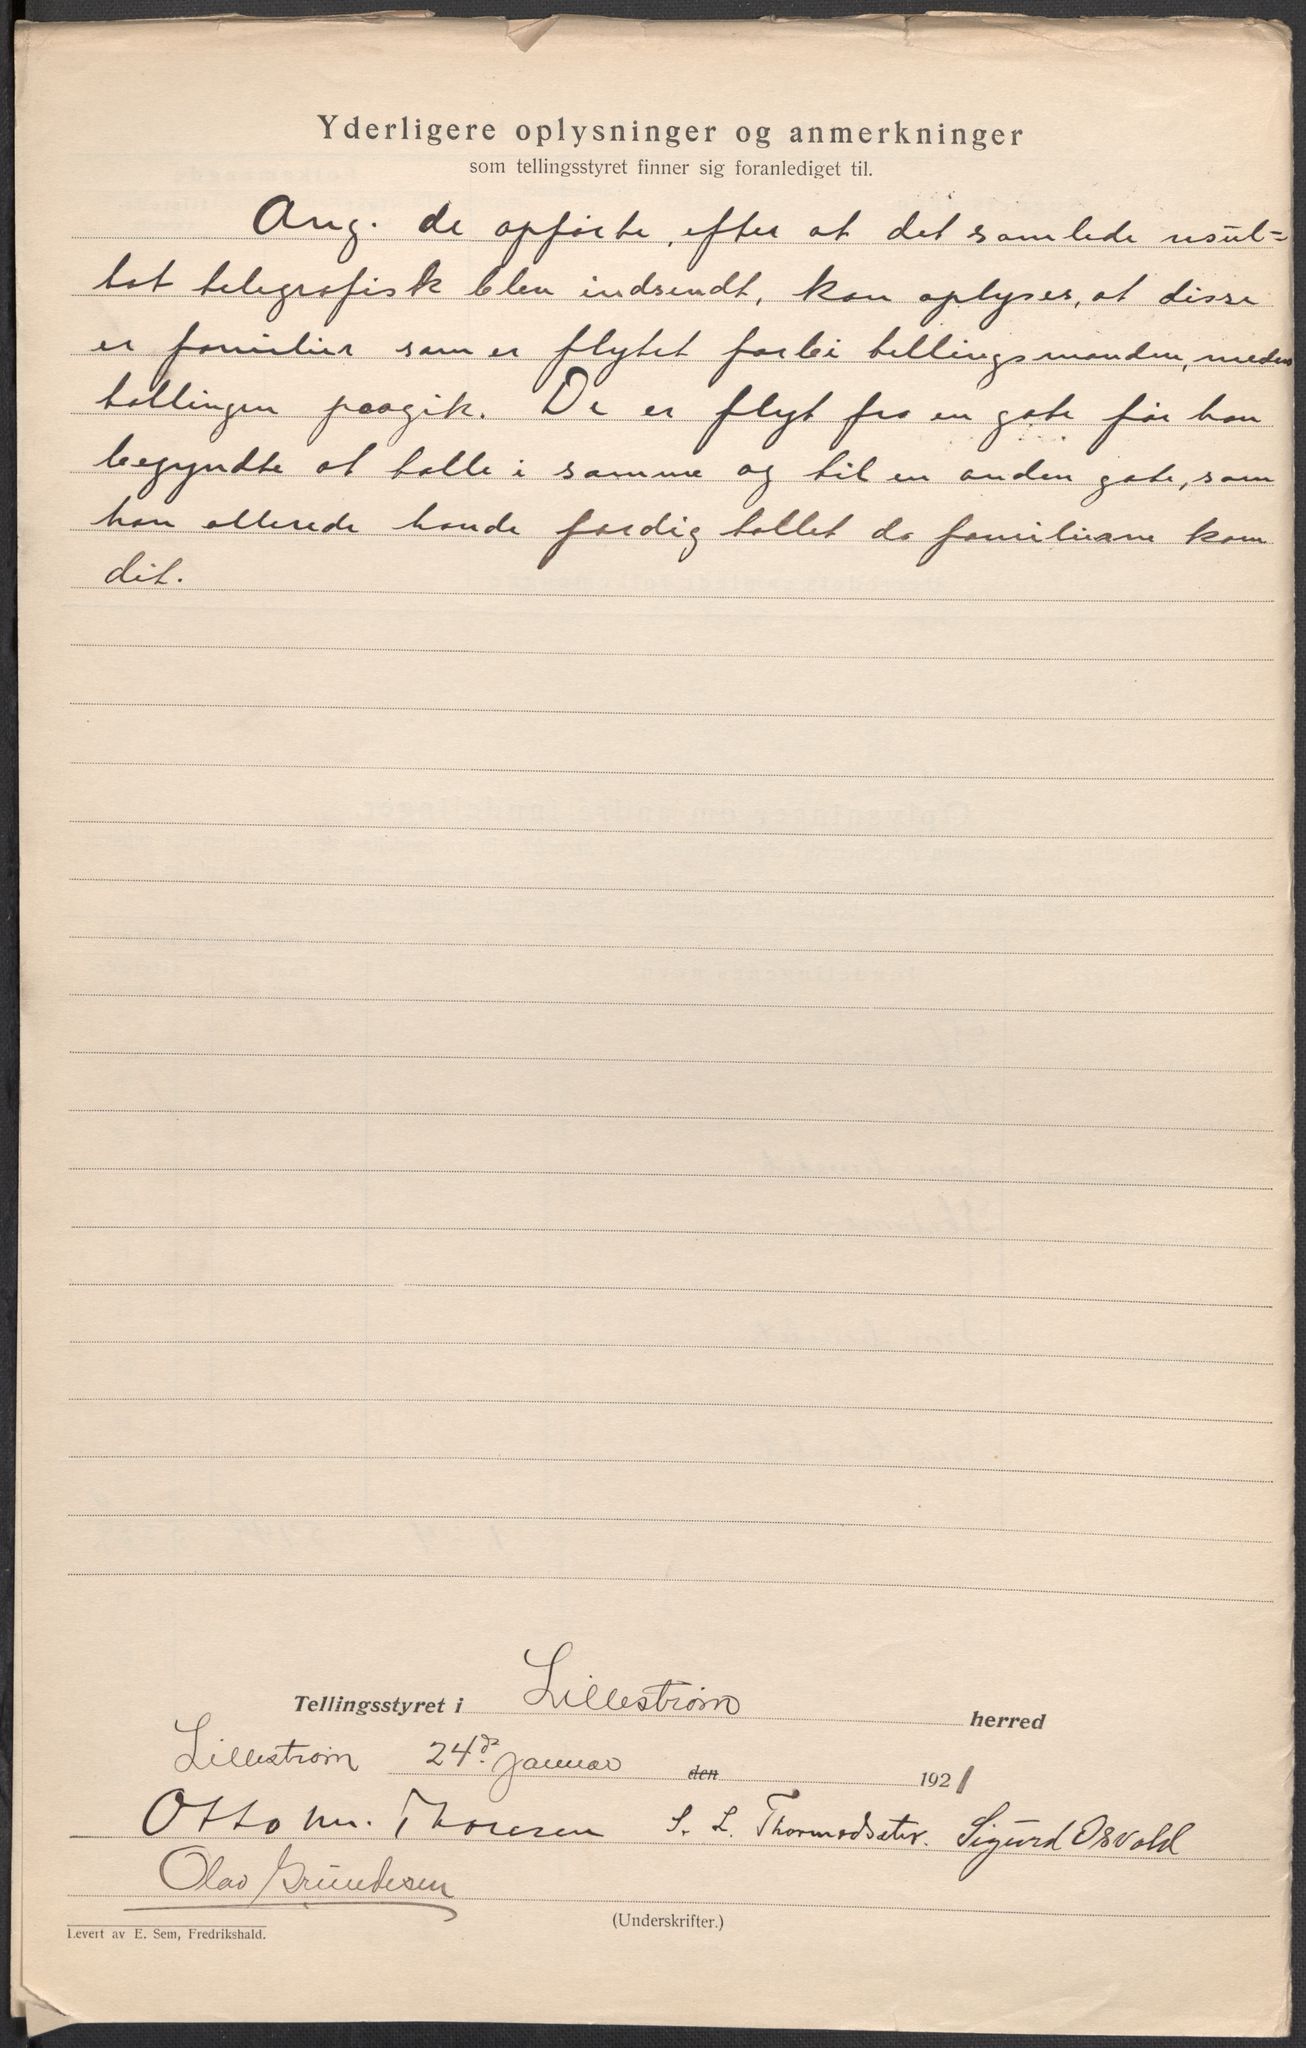 Yderligere oplysninger og anmerkninger
som tellingsstyret finner sig foranlediget til.
Ang. de opførte, efter at det samlede resul=
tat telegrafisk blev indsendt, kan oplyses, at disse
er familier som er flyttet forbi tellingsmanden, medens
tællingen paagik. De er flyt fra en gate før han
begyndte at tælle i samme og til en anden gate, som
han allerede havde færdig tællet da familierne kom
dit.
Tellingsstyret i Lillestrøm herred
Lillestrøm 24de januar den 1921
Otto M. Thoresen S. L. Thormodsæter. Sigurd Osvold
Olav Grundesen
(Underskrifter.)
Levert av E. Sem, Fredrikshald.